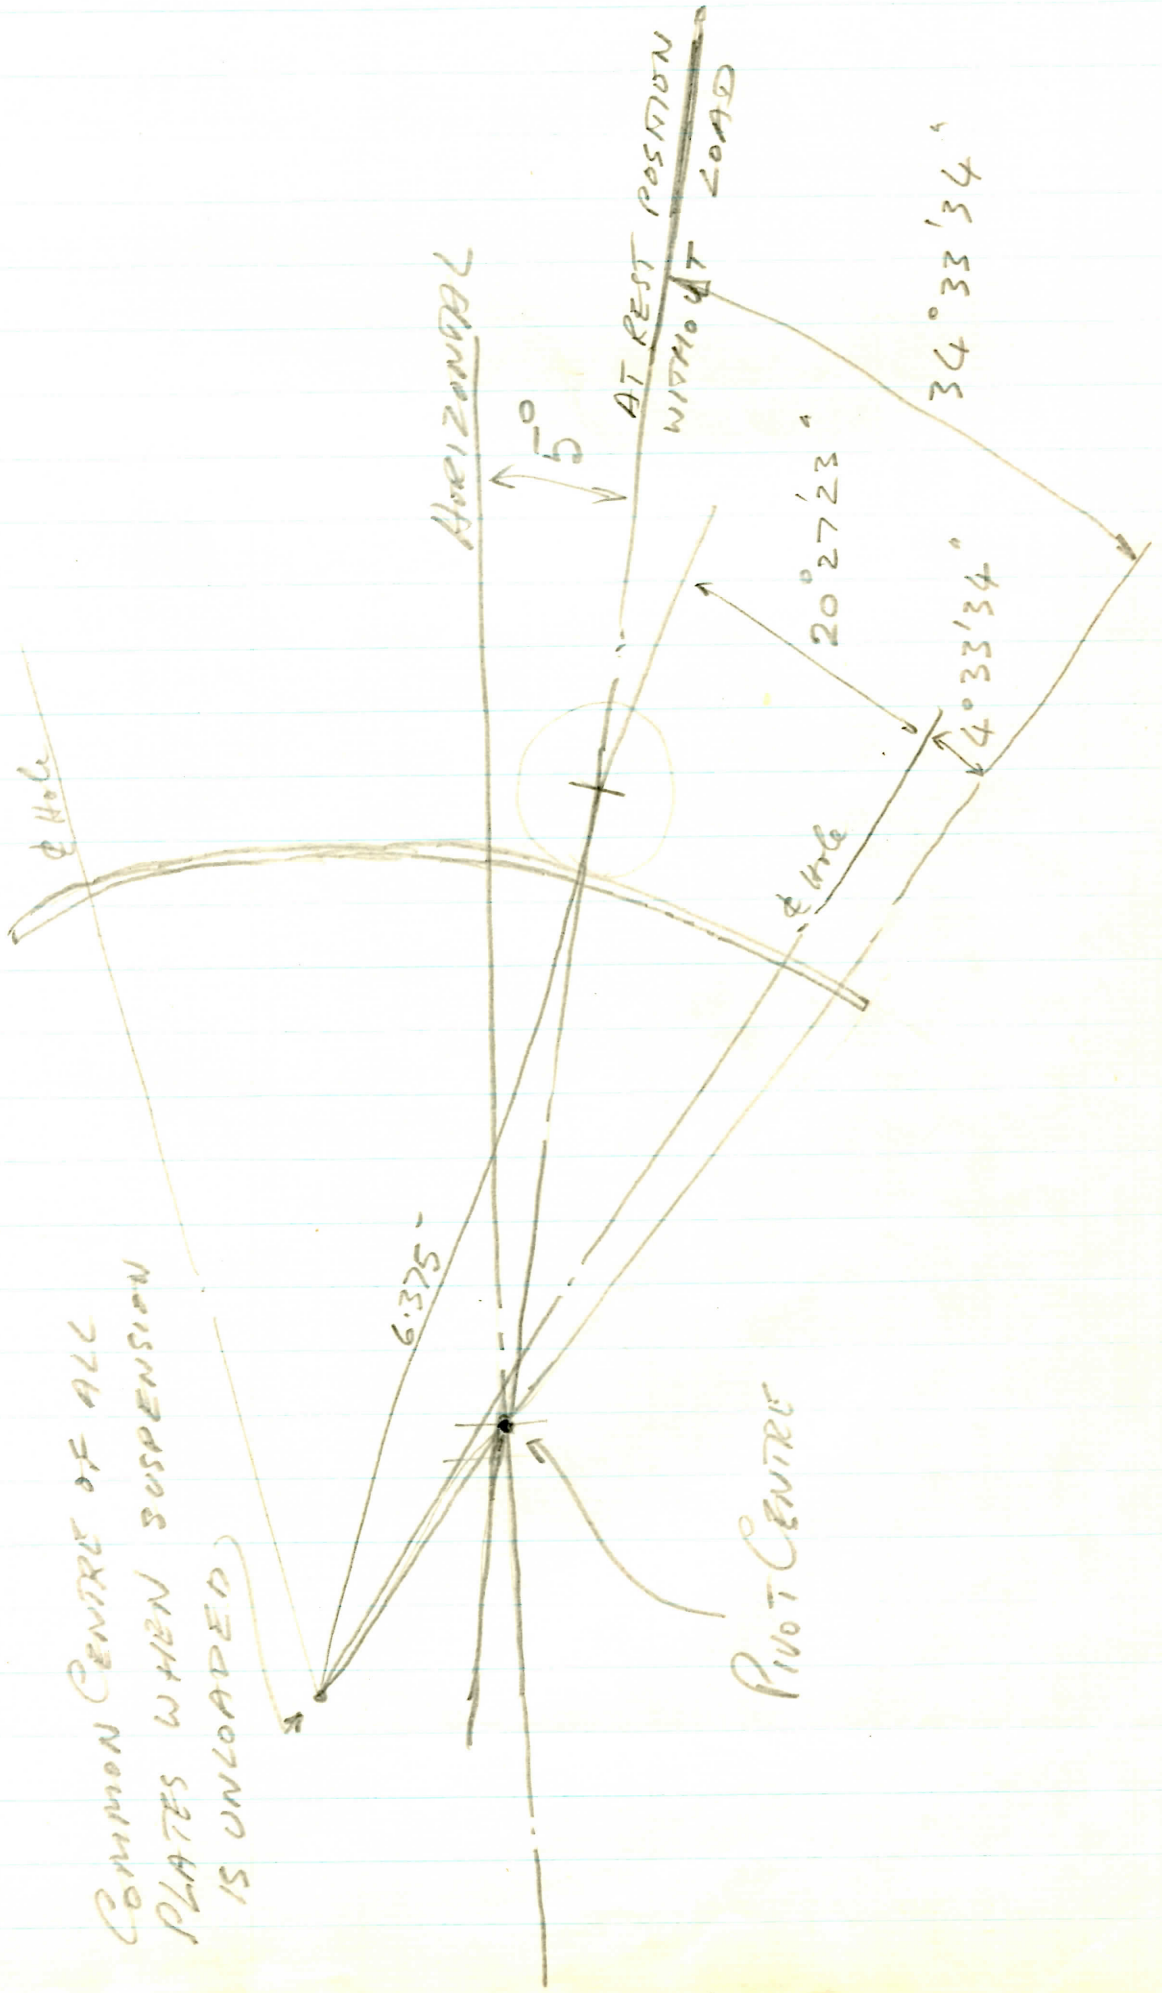 COMMON CENTRE OF ALL
PLATES WHEN SUSPENSION
IS UNLOADED
℄ Hole
HORIZONTAL
5°
AT REST POSITION
WITHOUT LOAD
6.375"
℄ Hole
20°27'23"
4°33'34"
34°33'34"
PIVOT CENTRE